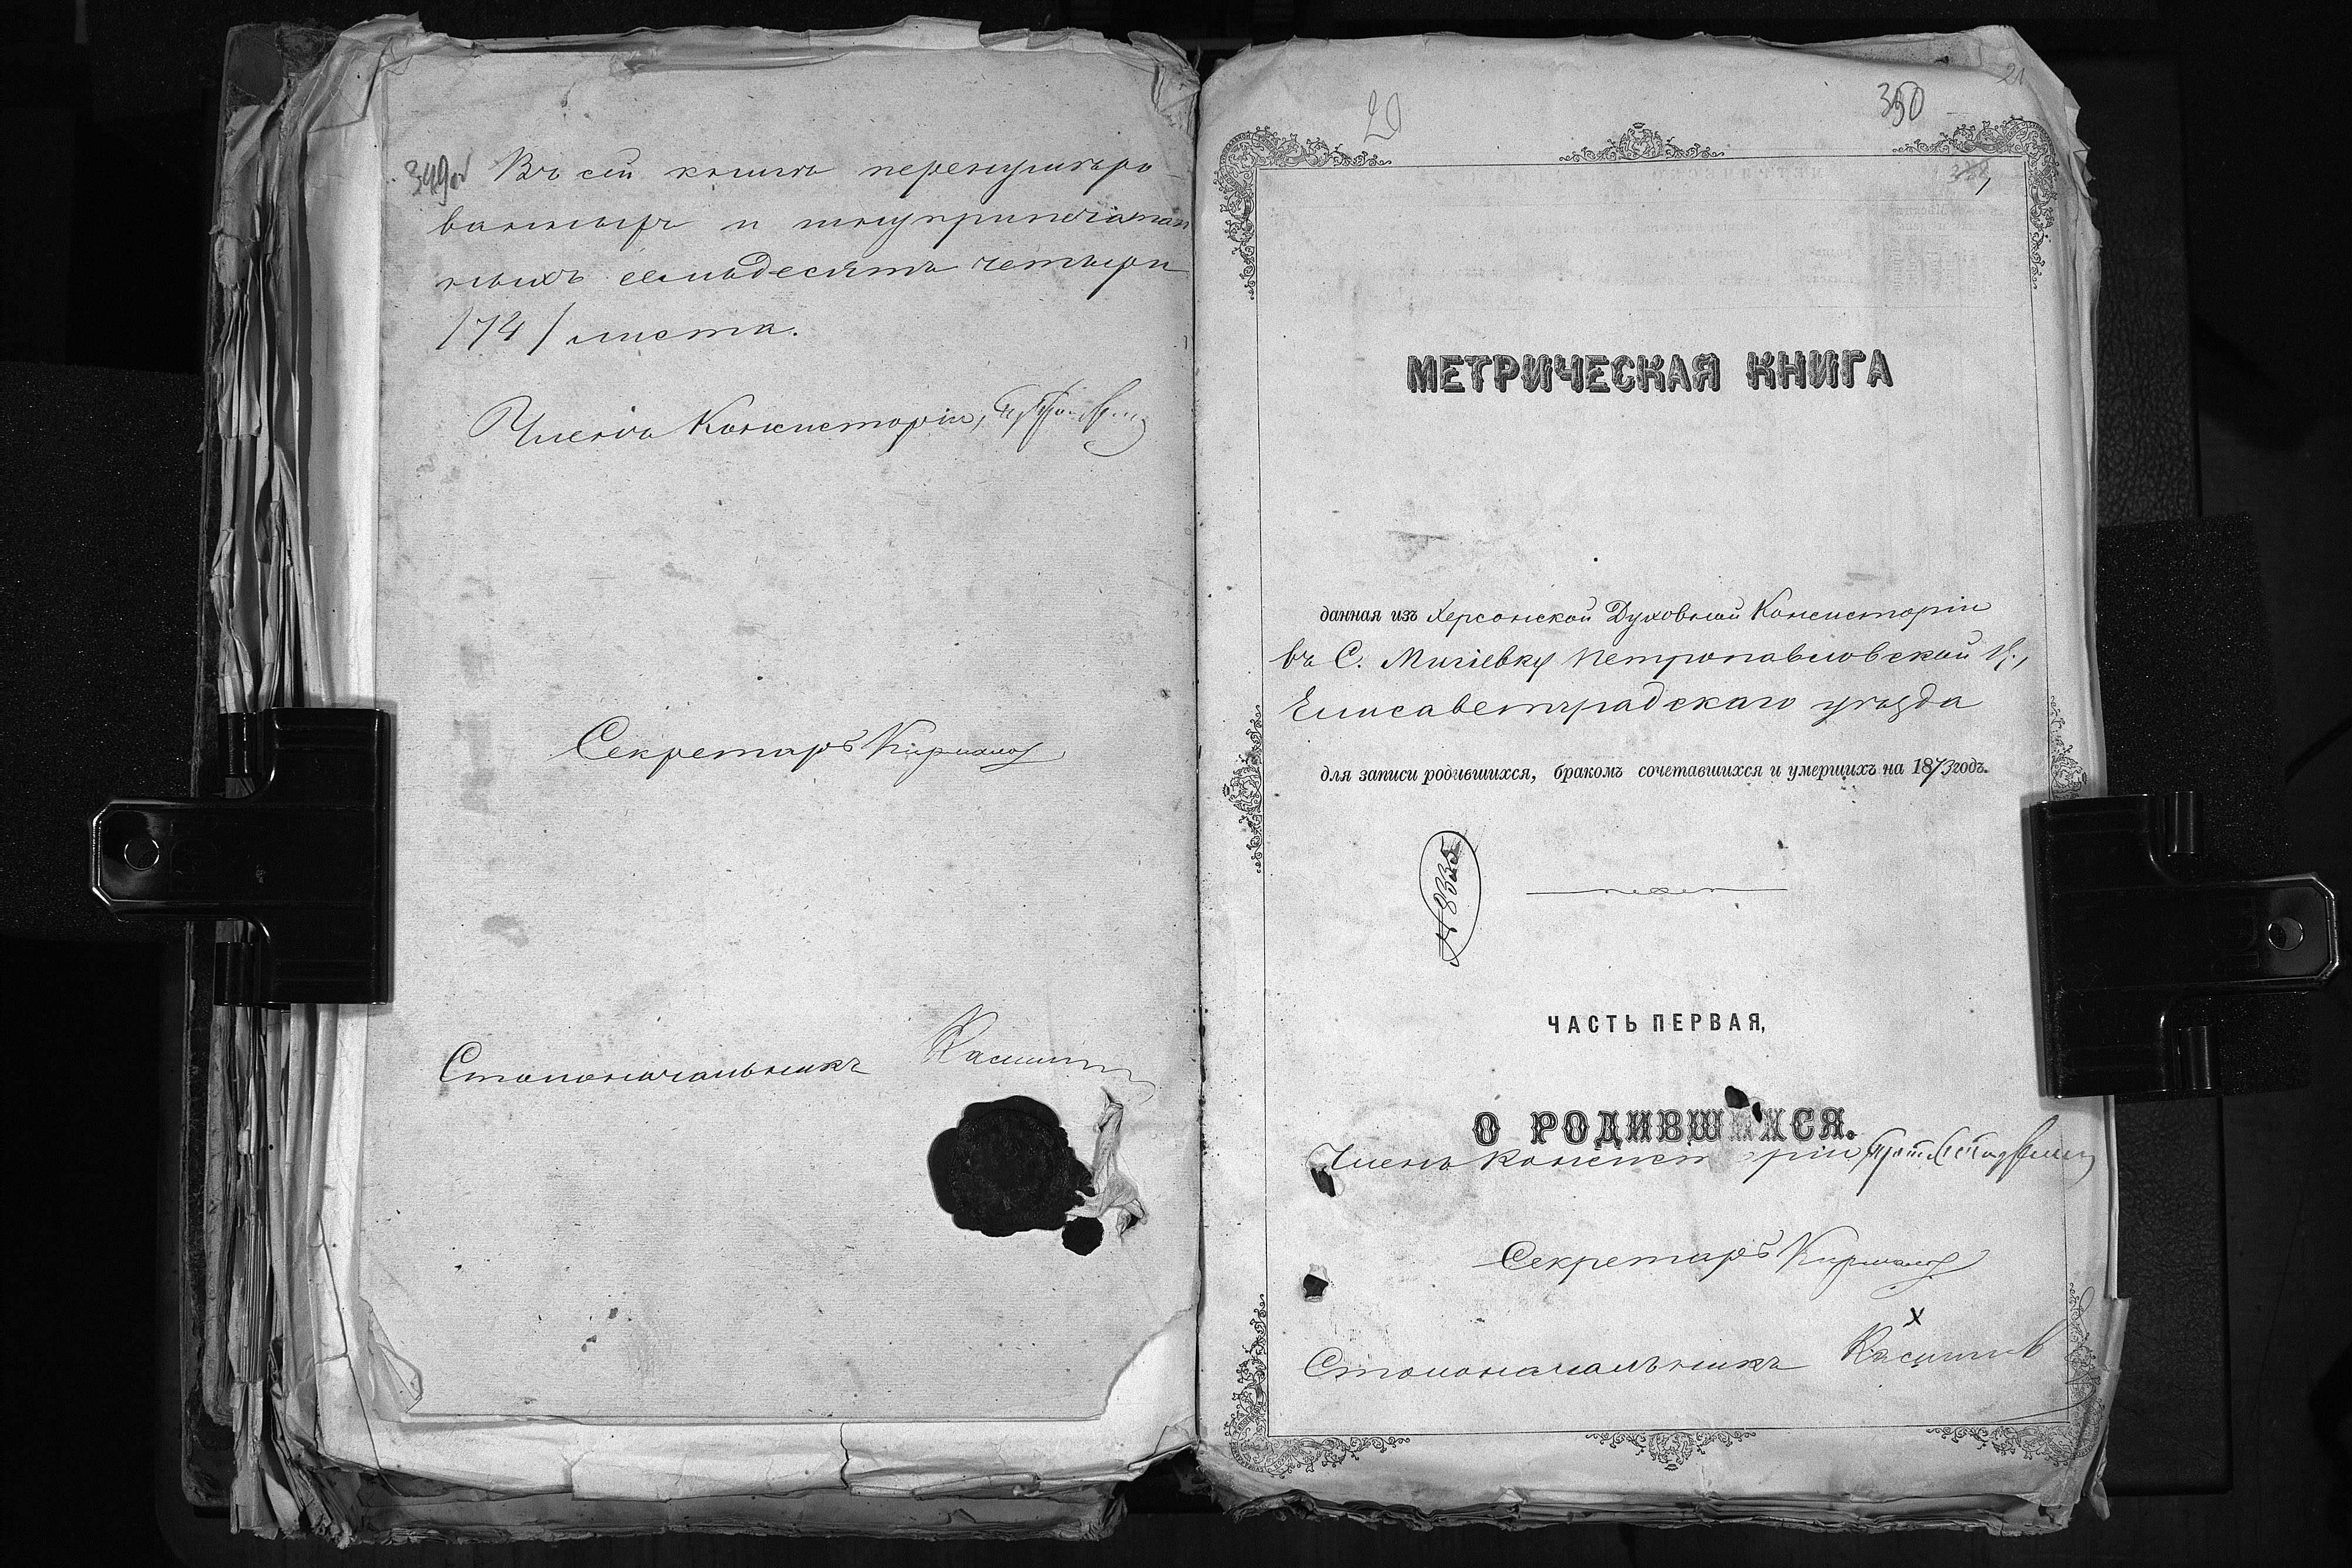 349об
Въ сей книге перенумеро-
ванныхъ и шнуроприпечатан
ныхъ семьдесятъ четыре
/74/ листа.
Членъ Консисторіи,
Секретарь
Столоначальникъ
20
350
21
МЕТРИЧЕСКАЯ КНИГА
данная изъ Херсонской Духовной Консисторіи
въ С. Мигіевку Петропавловской Ц.,
Елисаветградскаго уѣзда
для записи родившихся, бракомъ сочетавшихся и умершихъ на 1873 годъ.
ЧАСТЬ ПЕРВАЯ,
О РОДИВШИХСЯ.
Членъ Консисторіи,
Секретарь
Столоначальникъ